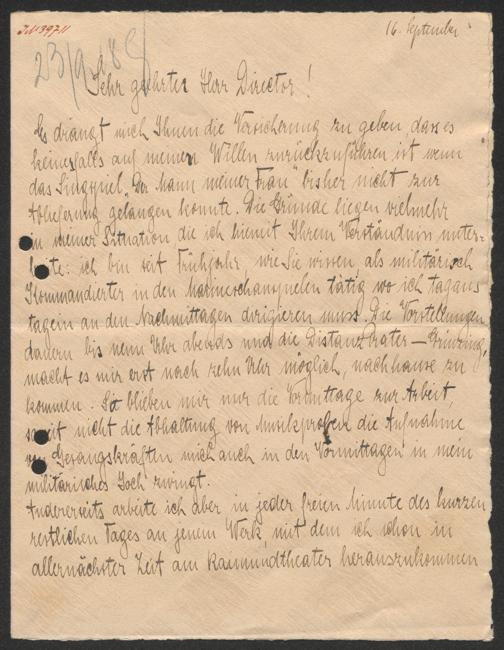 JN 139711
16. September
23/9 18
Sehr geehrter Herr Director!
Es drängt mich Ihnen die Versicherung zu geben, dass es
keinesfalls auf meinen Willen zurückzuführen ist wenn
das Singspiel „Der Mann meiner Frau" bisher nicht zur
Ablieferung gelangen konnte. Die Gründe liegen vielmehr
in meiner Situation die ich hiemit Ihrem Verständnis unter-
breite: ich bin seit Frühjahr wie Sie wissen als militärisch
Kommandierter in den Marineschauspielen tätig wo ich tagaus
tagein an den Nachmittagen dirigieren muss. Die Vorstellungen
dauern bis neun Uhr abends und die Distanz Prater – Grinzing,
macht es mir erst nach zehn Uhr möglich, nachhause zu
kommen. So blieben mir nur die Vormittage zur Arbeit,
soweit nicht die Abhaltung von Musikproben die Aufnahme
von Gesangskräften mich auch in den Vormittagen in mein
militärisches Joch zwingt.
Andererseits arbeite ich aber in jeder freien Minute des kurzen
restlichen Tages an jenem Werk, mit dem ich schon in
allernächster Zeit am Raimundtheater herauszukommen